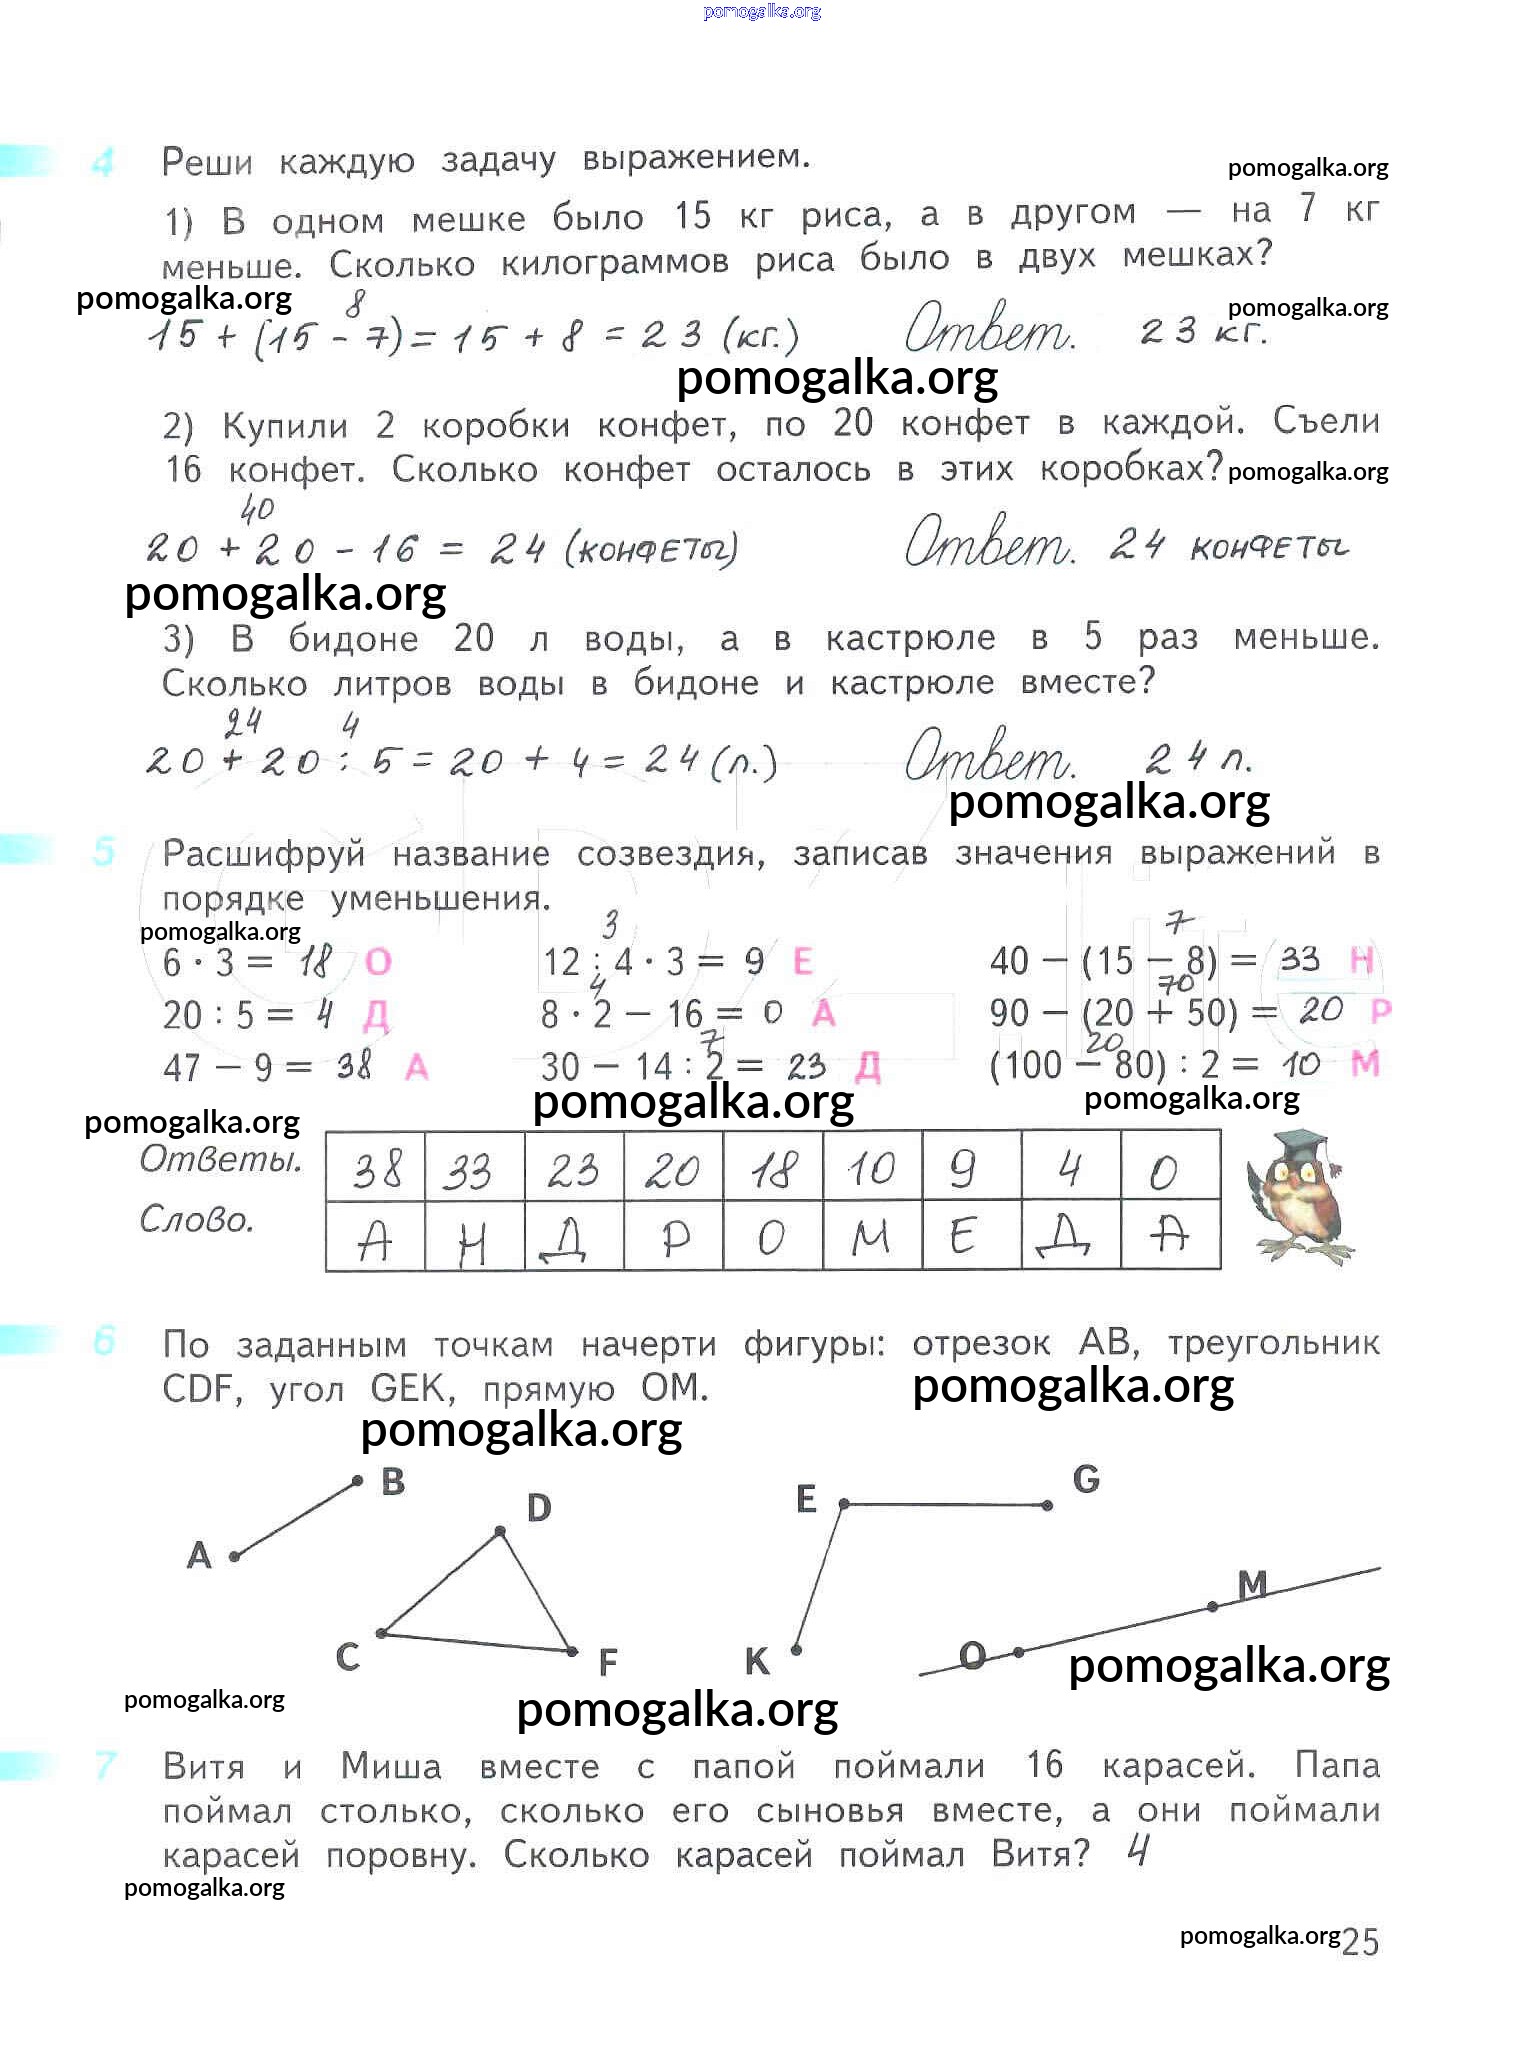 pomogalka.org
4 Реши каждую задачу выражением.
pomogalka.org
1) В одном мешке было 15 кг риса, а в другом — на 7 кг
меньше. Сколько килограммов риса было в двух мешках?
pomogalka.org
pomogalka.org
8
15 + (15 - 7) = 15 + 8 = 23 (кг.) Ответ. 23 кг.
pomogalka.org
2) Купили 2 коробки конфет, по 20 конфет в каждой. Съели
16 конфет. Сколько конфет осталось в этих коробках?
pomogalka.org
40
20 + 20 - 16 = 24 (конфеты) Ответ. 24 конфеты
pomogalka.org
3) В бидоне 20 л воды, а в кастрюле в 5 раз меньше.
Сколько литров воды в бидоне и кастрюле вместе?
24 4
20 + 20 : 5 = 20 + 4 = 24 (л.) Ответ. 24 л.
pomogalka.org
5 Расшифруй название созвездия, записав значения выражений в
порядке уменьшения.
pomogalka.org
3 7
6 · 3 = 18 О 12 : 4 · 3 = 9 Е 40 – (15 – 8) = 33 Н
4 70
20 : 5 = 4 Д 8 · 2 – 16 = 0 А 90 – (20 + 50) = 20 Р
7 20
47 – 9 = 38 А 30 – 14 : 2 = 23 Д (100 – 80) : 2 = 10 М
pomogalka.org
pomogalka.org
pomogalka.org
Ответы. 38 33 23 20 18 10 9 4 0
Слово. А Н Д Р О М Е Д А
6 По заданным точкам начерти фигуры: отрезок АВ, треугольник
CDF, угол GEK, прямую ОМ.
pomogalka.org
pomogalka.org
B
G
E
D
A
M
C
F
K
O
pomogalka.org
pomogalka.org
pomogalka.org
7 Витя и Миша вместе с папой поймали 16 карасей. Папа
поймал столько, сколько его сыновья вместе, а они поймали
карасей поровну. Сколько карасей поймал Витя? 4
pomogalka.org
pomogalka.org
25